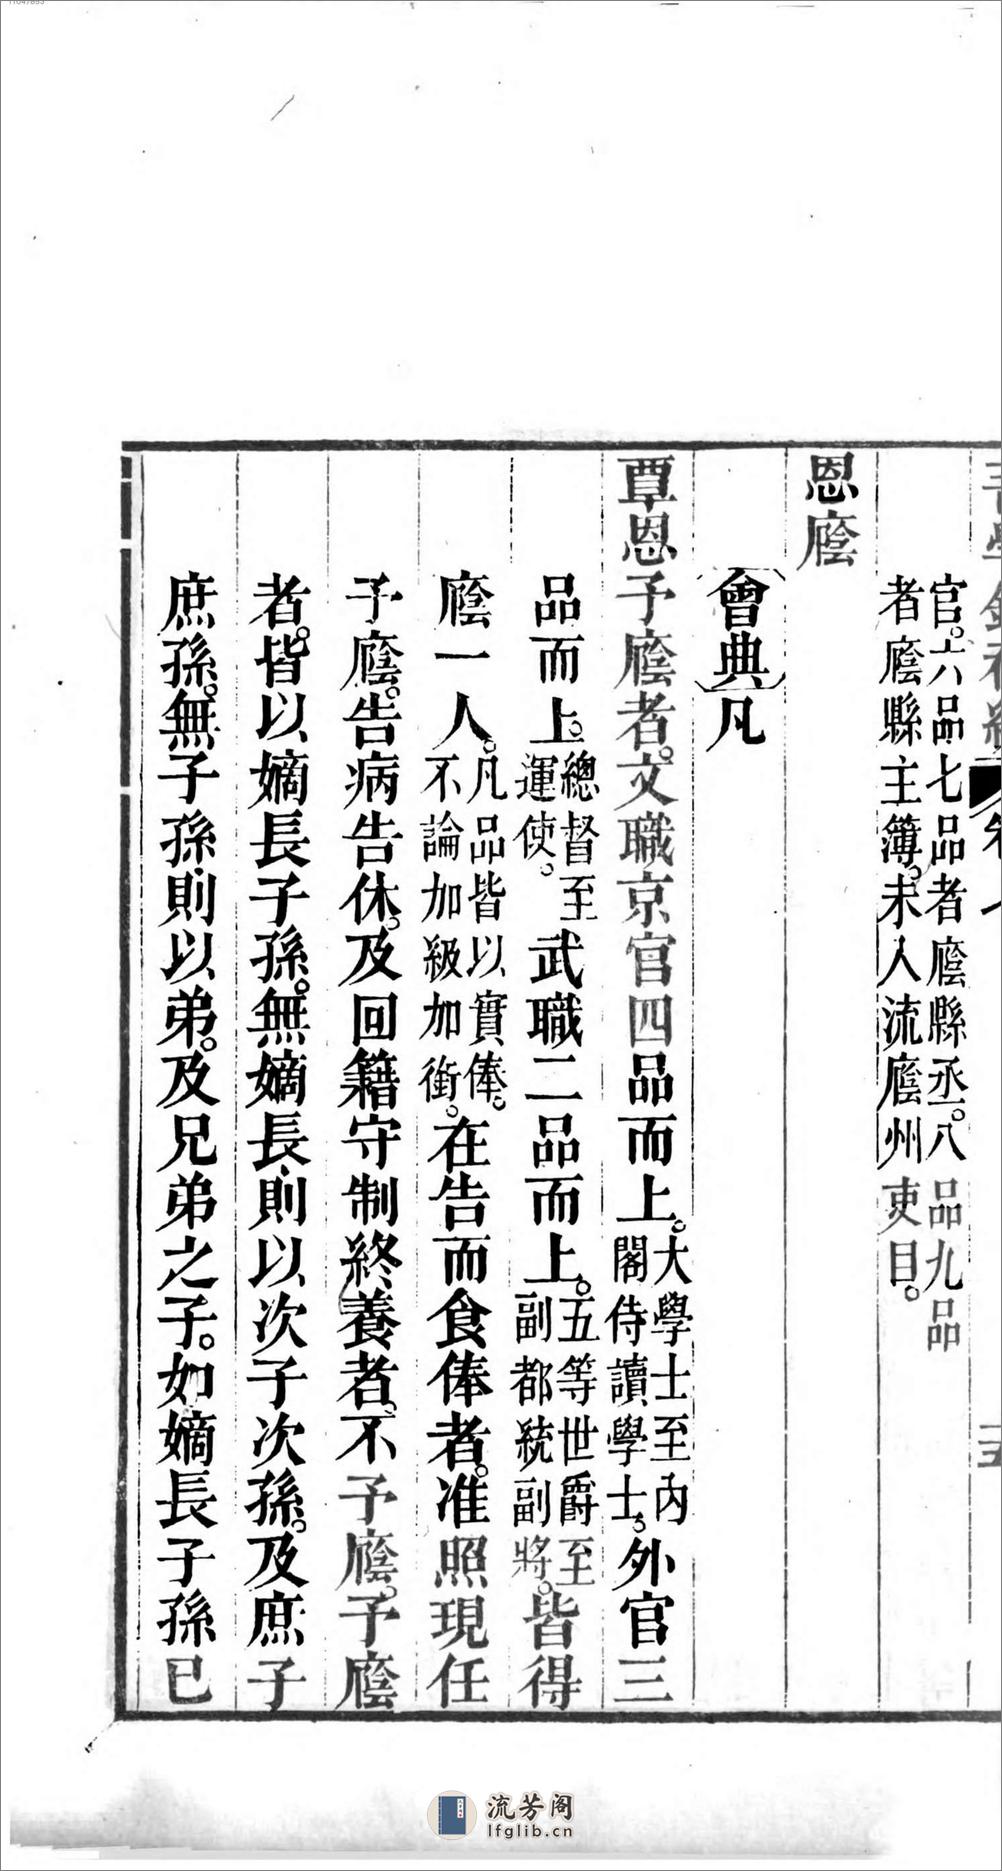 官。六品七品者廕縣丞。八品九品
者廕縣主簿。未入流廕州吏目。
恩廕
會典凡
覃恩予廕者。文職京官四品而上。大學士至內閣侍讀學士。外官三
品而上。總督至運使。武職二品而上。五等世爵至副都統副將。皆得
廕一人。凡品皆以實俸。不論加級加銜。在告而食俸者。准照現任
予廕。告病告休。及回籍守制終養者。不予廕。予廕
者。皆以嫡長子孫。無嫡長則以次子次孫。及庶子
庶孫。無子孫則以弟。及兄弟之子。如嫡長子孫已
流芳阁
lfglib.cn